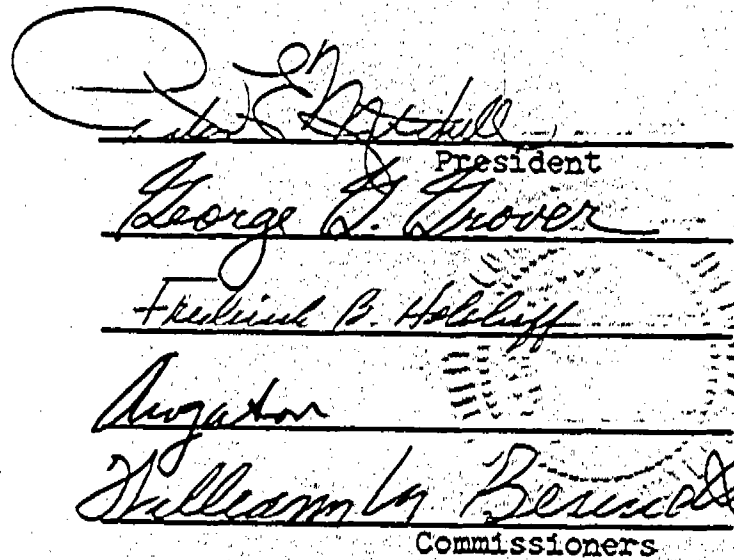 Peter E. Mitchell
President
George G. Grover
Frederick B. Holoboff
William M. Bennett
Commissioners